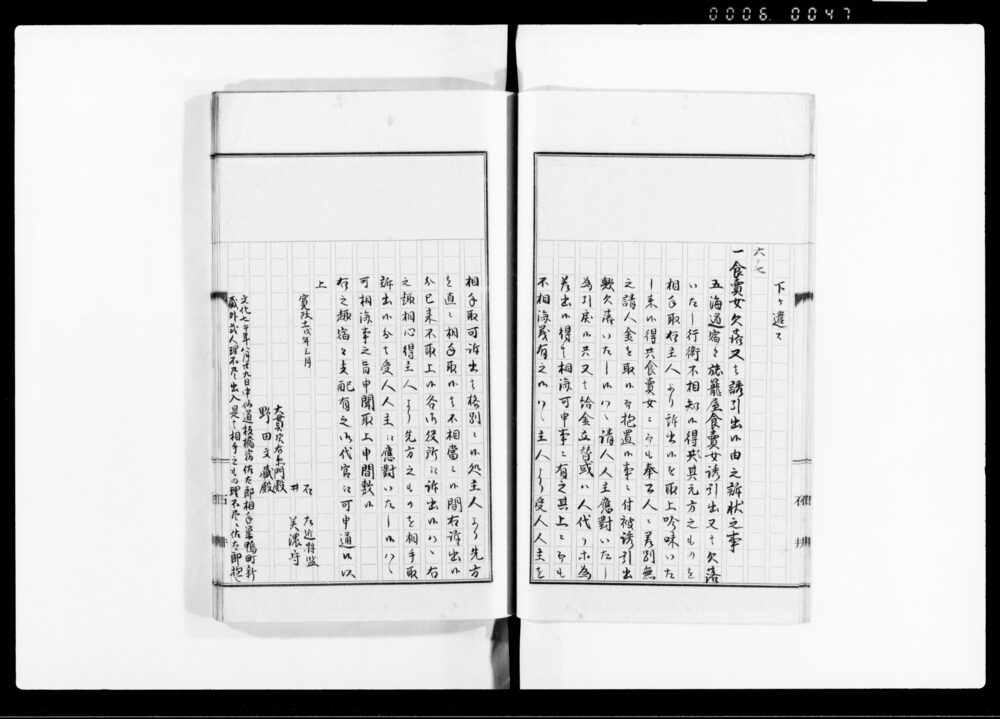 0006.0047
下ヶ遣ス
六ノ七
一食賣女欠落又ハ誘引出候由之訴状之事
五海道宿々旅籠屋食賣女誘引出又ハ欠落
いたし行衛不相知候得共其元方之ものを
相手取存主人より訴出候を取上吟味いた
し来候得共食賣女ニ而も奉公人ニ差別無
之請人金を取候而抱置候事ニ付被誘引出
歟欠落いたし候ハヽ請人人主應對いたし
為引戻候共又は給金立替或ハ人代り等為
差出候得は相濟可申事ニ有之其上ニ而も
不相濟義有之候ハヽ主人より受人人主を
相手取可訴出は格別ニ候処主人より先方
を直ニ相手取候は不相當ニ候間右訴出候
分已来不取上候各御役所江訴出候ハヽ右
之趣相心得主人より先方之ものを相手取
訴出候分は受人人主江應對いたし候ハヽ
可相濟事之旨申聞取上申間敷候
右之趣宿々支配有之御代官江可申通候以
上
寛政十戌年三月
石 左近将監
井 美濃守
大貫次右衛門殿
野田文蔵殿
文化七午年八月廿九日中仙道板橋宿佐太郎相手巣鴨町新
蔵外貳人理不尽出入是は相手之もの理不尽ニ佐太郎抱